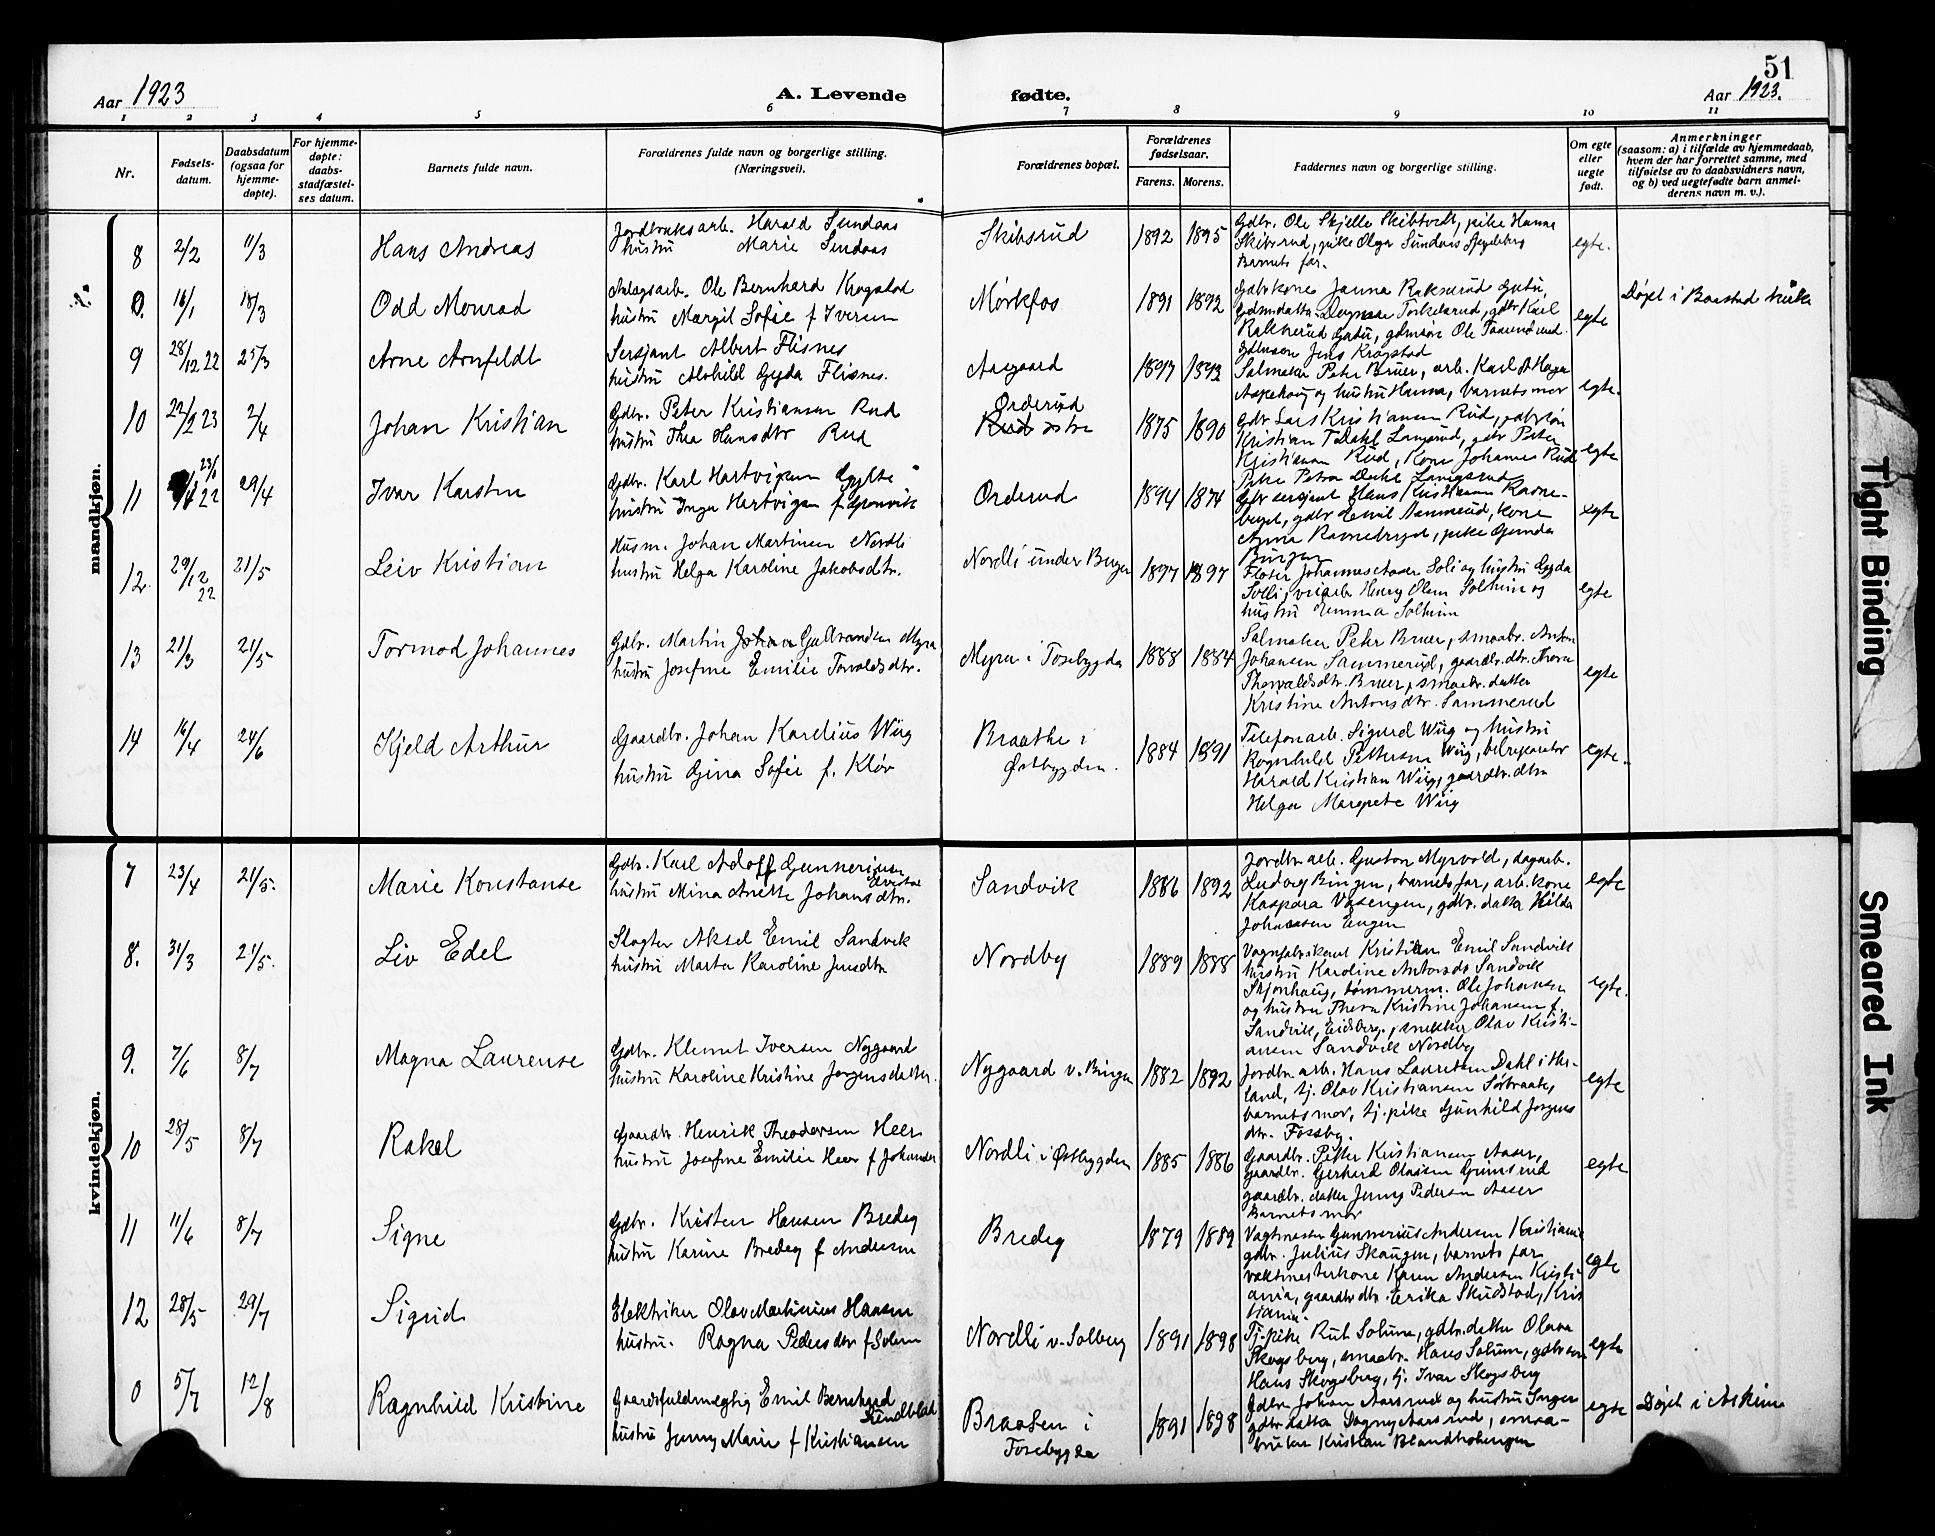 51
Aar 1923
A. Levende fødte.
Aar 1923.
1 2 3 4 5 6 7 8 9 10 11
Nr.
Fødsels-
datum.
Daabsdatum
(ogsaa for
hjemme-
døpte).
For hjemme-
døpte:
daabs-
stadfæstel-
ses datum.
Barnets fulde navn.
Forældrenes fulde navn og borgerlige stilling.
(Næringsvei).
Forældrenes bopæl.
Forældrenes
fødselsaar.
Farens. Morens.
Faddernes navn og borgerlige stilling.
Om egte
eller
uegte
født.
Anmerkninger
(saasom: a) i tilfælde av hjemmedaab,
hvem der har forrettet samme, med
tilføielse av to daabsvidners navn,
og b) ved uegtefødte barn anmel-
derens navn m. v.).
mandkjøn.
8 2/2 11/3 Hans Andreas
Jordbruksarb. Harald Sundaas
hustru Marie Sundaas
Skibsrud 1892 1895
Gdbr. Ole Skjelle Skibtvedt, pike Hanna
Skibsrud, pike Olga Sundaas Spydeberg
Barnets far.
egte.
0. 16/1 18/3 Odd Monrad
Anlægsarb. Ole Bernhard Krogstad
hustru Margit Sofie f Iversen
Mørkfos 1891 1892
Gdbrkone Janna Rakserud
Dagmar Torkelsrud, gdbr Karl
Rakserud, Ole
Jens Krogstad
egte
Døpt i Baastad kirke
9 28/12 22 25/3 Arne Arnfeldt
Sersjant Albert Flisnes
hustru Alvhild Gyda Flisnes.
Aasgaard 1897 1893
Salmaker Peter Bruer, arb. Karl
og hustru Hanna, barnets mor
egte.
10 22/2 23 2/4 Johan Kristian
Gdbr. Peter Kristiansen Rud
hustru Thea Hansdtr Rud
Orderud
Rud østre 1875 1890
Gdbr Lars Kristiansen Rud, gdbrsøn
Kristian T Dahl Langsrud, gdbr Peter
Kristiansen Rud, Kone Johanne Rud
Pike Petra Dahl Langsrud
egte
11 23/1 22 29/4 Ivar Karsten
Gdbr. Karl Hartvigsen
hustru Inga Hartvigsen f. Grønvik
Orderud 1894 1874
Gdbr sersjant Hans Kristiansen Ravne-
berget, gdbr Emil, kone
Anna, pike Gunda
Bingen
egte
12. 29/12 22 21/5 Leiv Kristian
Husm. Johan Martinsen Nordli
hustru Helga Karoline Jakobsdtr.
Nordli under Berger 1897 1897
Fløter Johannes Aaser Soli og hustru Gyda
Solli, veiarb Henry Olsen Solheim og
hustru Emma Solheim
egte
13 21/3 21/5 Tormod Johannes
Gdbr. Martin Johan Gulbrandsen Myra
hustru Josefine Emilie Torvaldsdtr.
Myra i Tosebygda 1888 1884
Salmaker Peter Bruer, smaabr. Anton
Johansen Sammerud, gaardbr. dtr. Thora
Thorvaldsdtr. Bruer, smaabr. datter
Kristine Antonsdtr. Sammerud
egte
14 16/4 24/6 Kjeld Arthur
Gaardbr. Johan Karelius Wiig
hustru Gina Sofie f. Kløv
Braathe i
Østbygden. 1884 1891
Telefonarb. Sigurd Wiig og hustru
Ragnhild Pettersen Wiig, bilreparatør
Harald Kristian Wiig, gaardbr. dtr.
Helga Margrete Wiig
egte.
kvindekjøn.
7 23/4 21/5. Marie Konstanse
Gdbr. Karl Adolf Gunneriusen
hustru Mina Anette Johansdtr.
Sandvik 1886 1892
Jordbr. arb. Gustav Myrvold, dagarb.
Ludvig Bingen, barnets far, arb. kone
Kaspara Vasengen, gdbr. datter Hilda
Johansen Engen
egte
8. 31/3 21/5. Liv Edel
Slagter Aksel Emil Sandvik
hustru Marta Karoline Jensdtr
Nordby 1889 1888
Vognfabrikant Kristian Emil Sandvik
hustru Karoline Antonsdtr Sandvik
Skjønhaug, tømmerm. Ole Johansen
og hustru Thora Kristine Johansen f.
Sandvik, Eidsberg, snekker Olav Kristi-
ansen Sandvik Nordby
egte.
9. 7/6 8/7 Magna Laurense
Gdbr. Klemet Iversen Nygaard
hustru Karoline Kristine Jørgensdatter.
Nygaard v. Bingen 1882 1892
Jordbr. arb. Hans Lauritsen Dahl i Her-
land, tj. Olav Kristiansen Sørbraate,
barnets mor, tj. pike Gunhild Jørgens
dtr. Fossby.
egte
10 28/5 8/7 Rakel
Gaardbr. Henrik Theodorsen Heer
hustru Josefine Emilie Heer f Johansen
Nordli i Østbygden 1885 1886
Gaardbr. Petter Kristiansen Aaser,
gaardbr. Gerhard Olausen Grimsrud
gaardbr. datter Jenny Pedersen Aaser
Barnets mor
egte
11 11/6 8/7 Signe
Gdbr. Kristen Hansen Bredeg
hustru Karine Bredeg f Andersen
Bredeg 1879 1889
Vagtmester Gunnerius Andersen Kristiania
gdbr. Julius Skaugen, barnets far
vaktmesterkone Karen Andersen Kristi-
ania, gaardbr dtr. Erika Skudstad, Kris
tiania.
egte
12 28/5 29/7 Sigrid
Elektriker Olav Martinius Hansen
hustru. Ragna Pedersdtr f Solum
Nordli v. Solberg 1891 1898
Tj. pike Rut Solum, gdbr. datter Olava
Skogsberg, smaabr. Hans Solum, gdbr søn
Hans Skogsberg, tj. Ivar Skogsberg
egte
0 5/7 12/8 Ragnhild Kristine
Gaardsfuldmægtig Emil Bernhard
Lindblad
hustru Jenny Marie f Kristiansen
Braaten i
Tosebygda 1891 1898
Gdbr. Johan Aarsrud og hustru Inger
gdbr datter Dagny Aarsrud, smaa-
bruker Kristian
egte
Døpt i Askim
Tight Binding
Smeared Ink